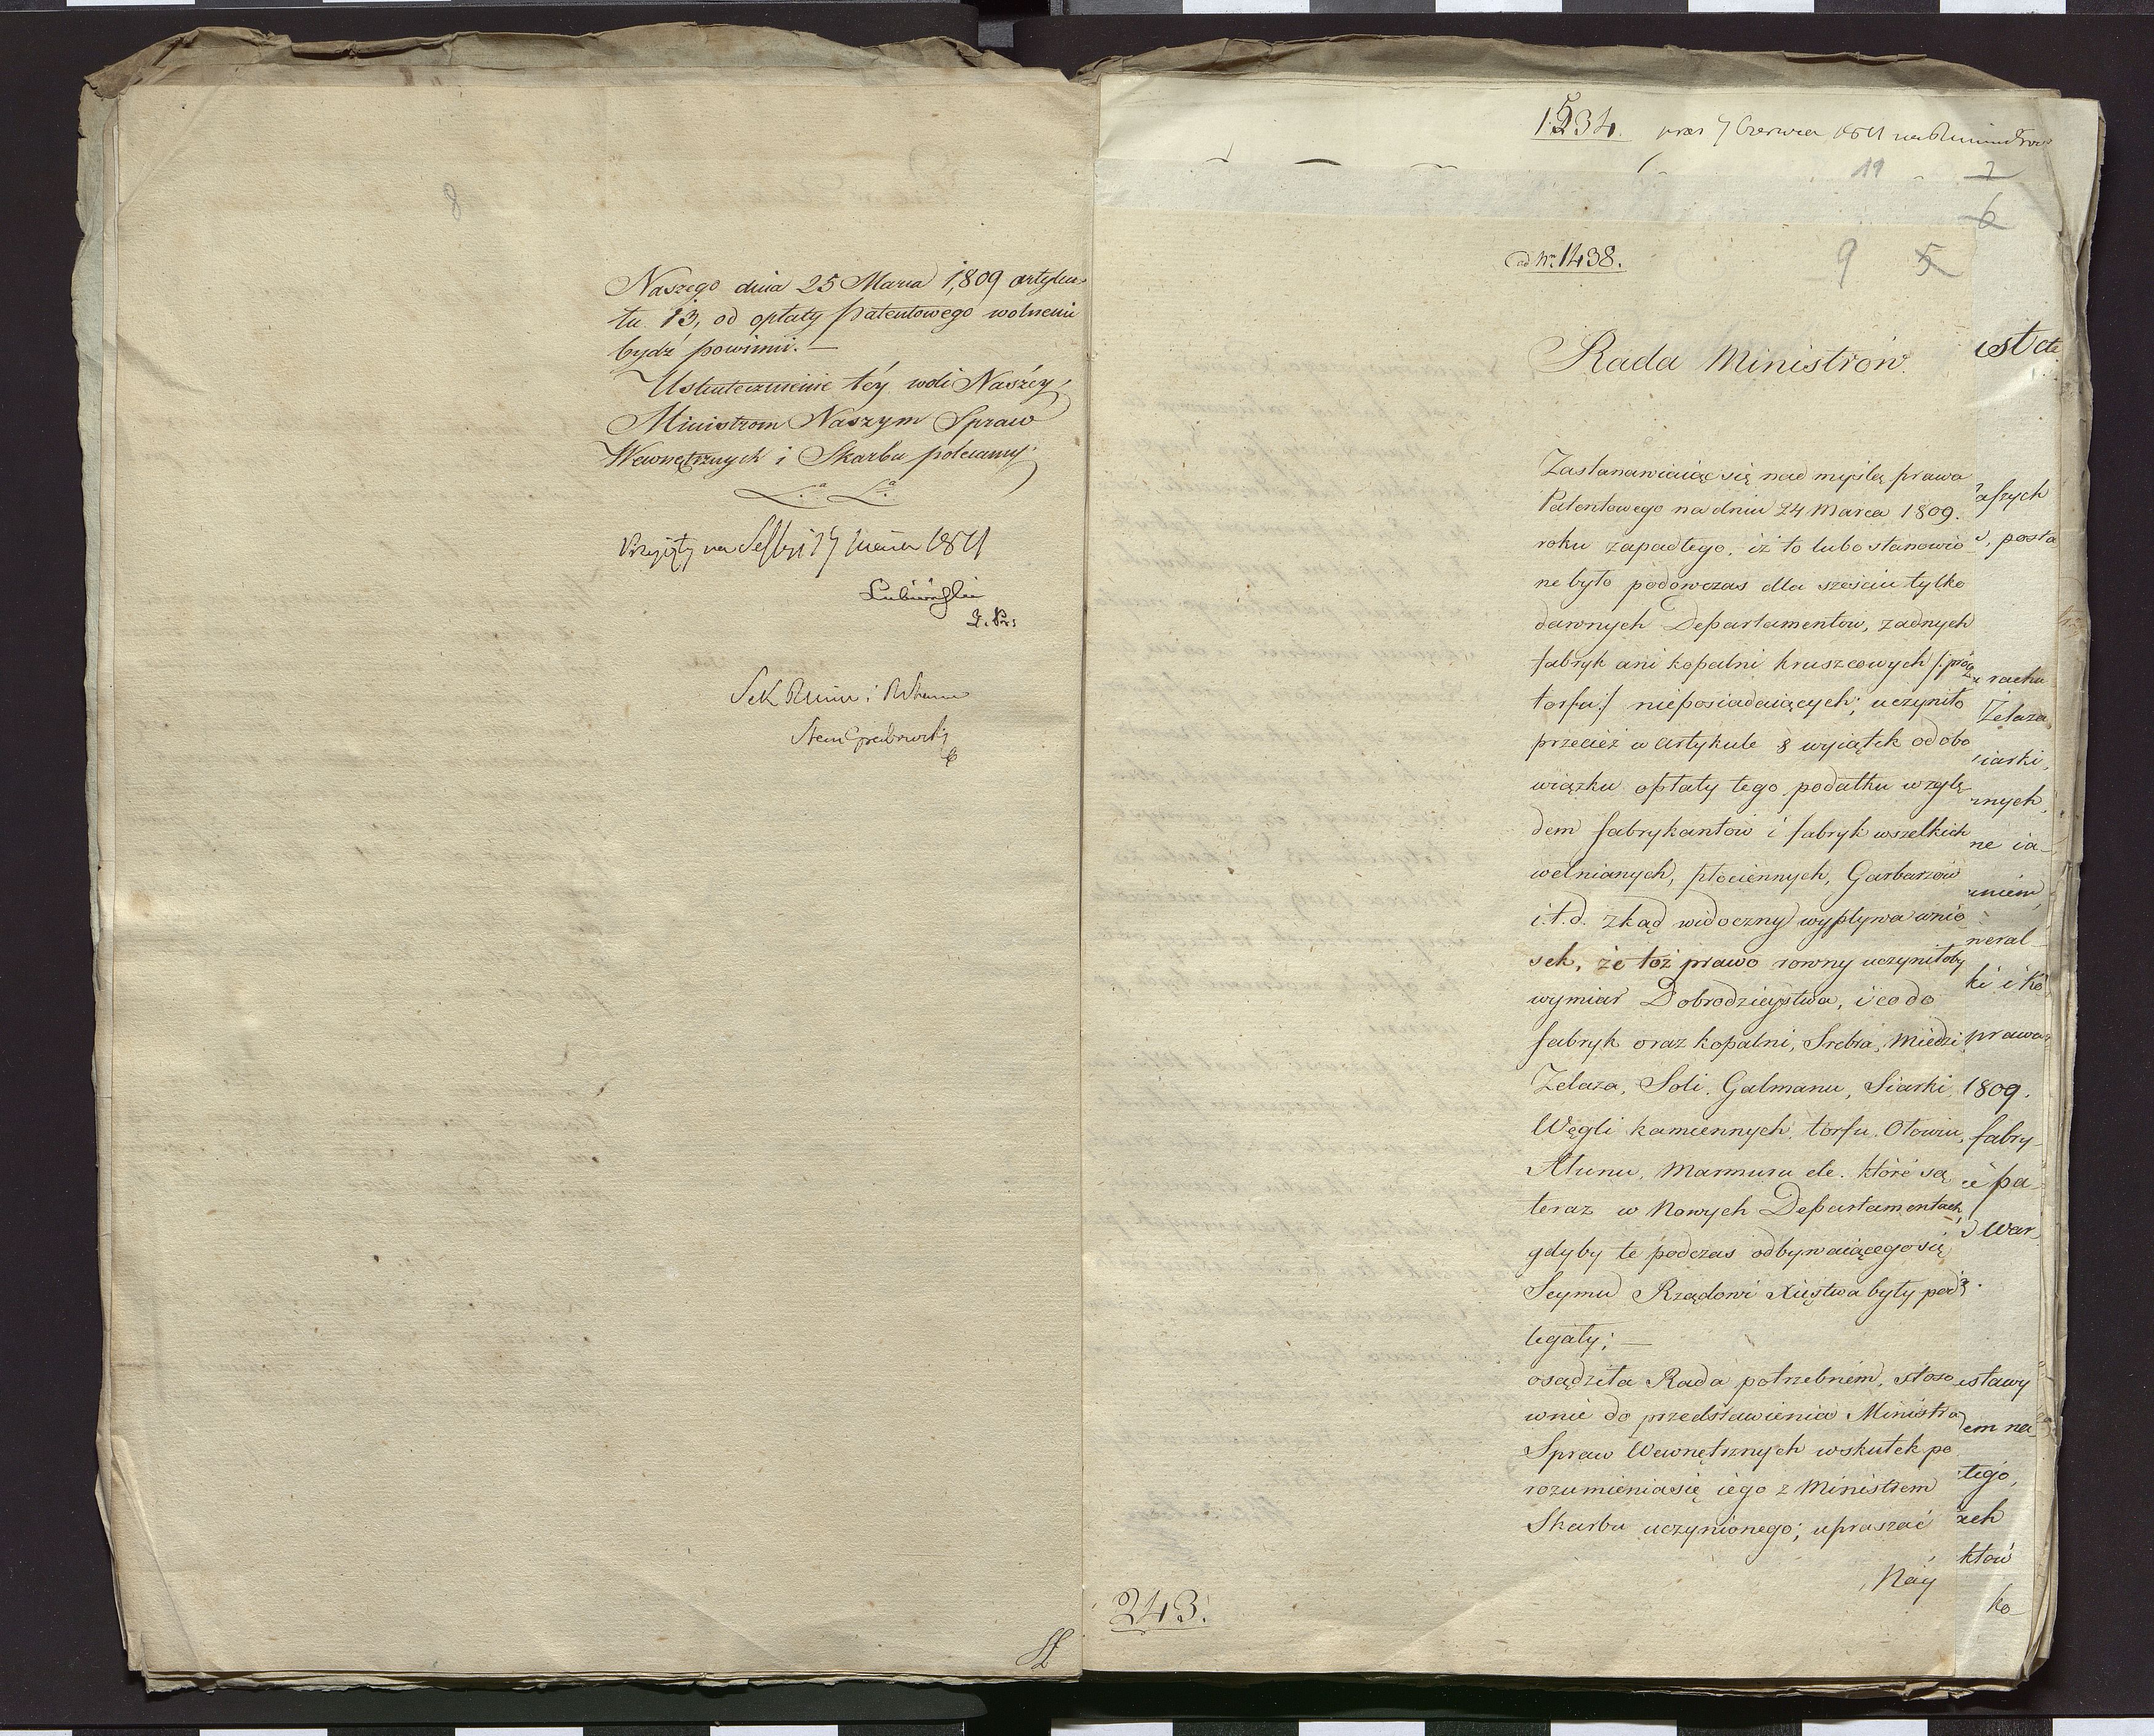 8
Naszego dnia 25 Marca 1,809 artyku-
łu 13, od opłaty patentowego wolnemi
bydź powinni. —
Uskutecznienie téy woli Naszéy,
Ministrom Naszym Spraw
Wewnętrznych i Skarbu polecamy.
L.a L.a
Przyięty na Sessyi
1811
Lubieński
Sek
i
243.
1534. 7 Czerwca 1811 na
19 7
6
ad Nr. 1438.
9 5
Rada Ministrów.
Zastanawiaiąc się nad myślą prawa
Patentowego na dniu 24 Marca 1809.
roku zapadłego, iż to lubo stanowio
ne było podowczas dla sześciu tylko
dawnych Departamentów, żadnych
fabryk ani kopalni kruszcowych /: prócz
torfu :/ nieposiadaiących; uczyniło
przecież w artykule 8 wyiątek od obo
wiązku opłaty tego podatku wzglę
dem fabrykantów i fabryk wszelkich
wełnianych, płóciennych, Garbarzów
i.t.d. zkąd widoczny wypływa wnio
sek, że toż prawo rowny uczyniłoby
wymiar Dobrodzieystwa, i co do
fabryk oraz kopalni, Srebra, Miedzi
Żelaza, Soli, Galmanu, Siarki,
Węgli kamiennych, torfu, Ołowiu,
Ałunu, Marmuru etc. które są
teraz w Nowych Departamentach,
gdyby te podczas odbywaiącego się
Seymu Rządowi Xięstwa były pod
legały; —
osądziła Rada potrzebnem, stoso
wnie do przedstawienia Ministra
Spraw Wewnętrznych wskutek po
rozumienia się iego z Ministrem
Skarbu uczynionego; upraszać
Nay
aszych
posta
rachu
Żelaza
siarki,
rnych,
ne ia-
niem,
neral-
ki i ko
prawa
1809.
fabry-
é pa-
War-
ustawy
em na-
tego,
ach
któw
ko-